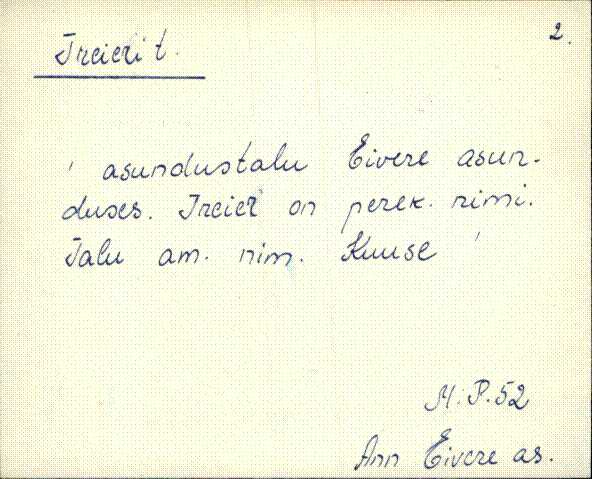 2.
Treieri t.
' asundustalu Eivere asun-
duses. Treier on perek. nimi.
Talu am. nim. Kuuse '
M. P. 52
Ann Eivere as.